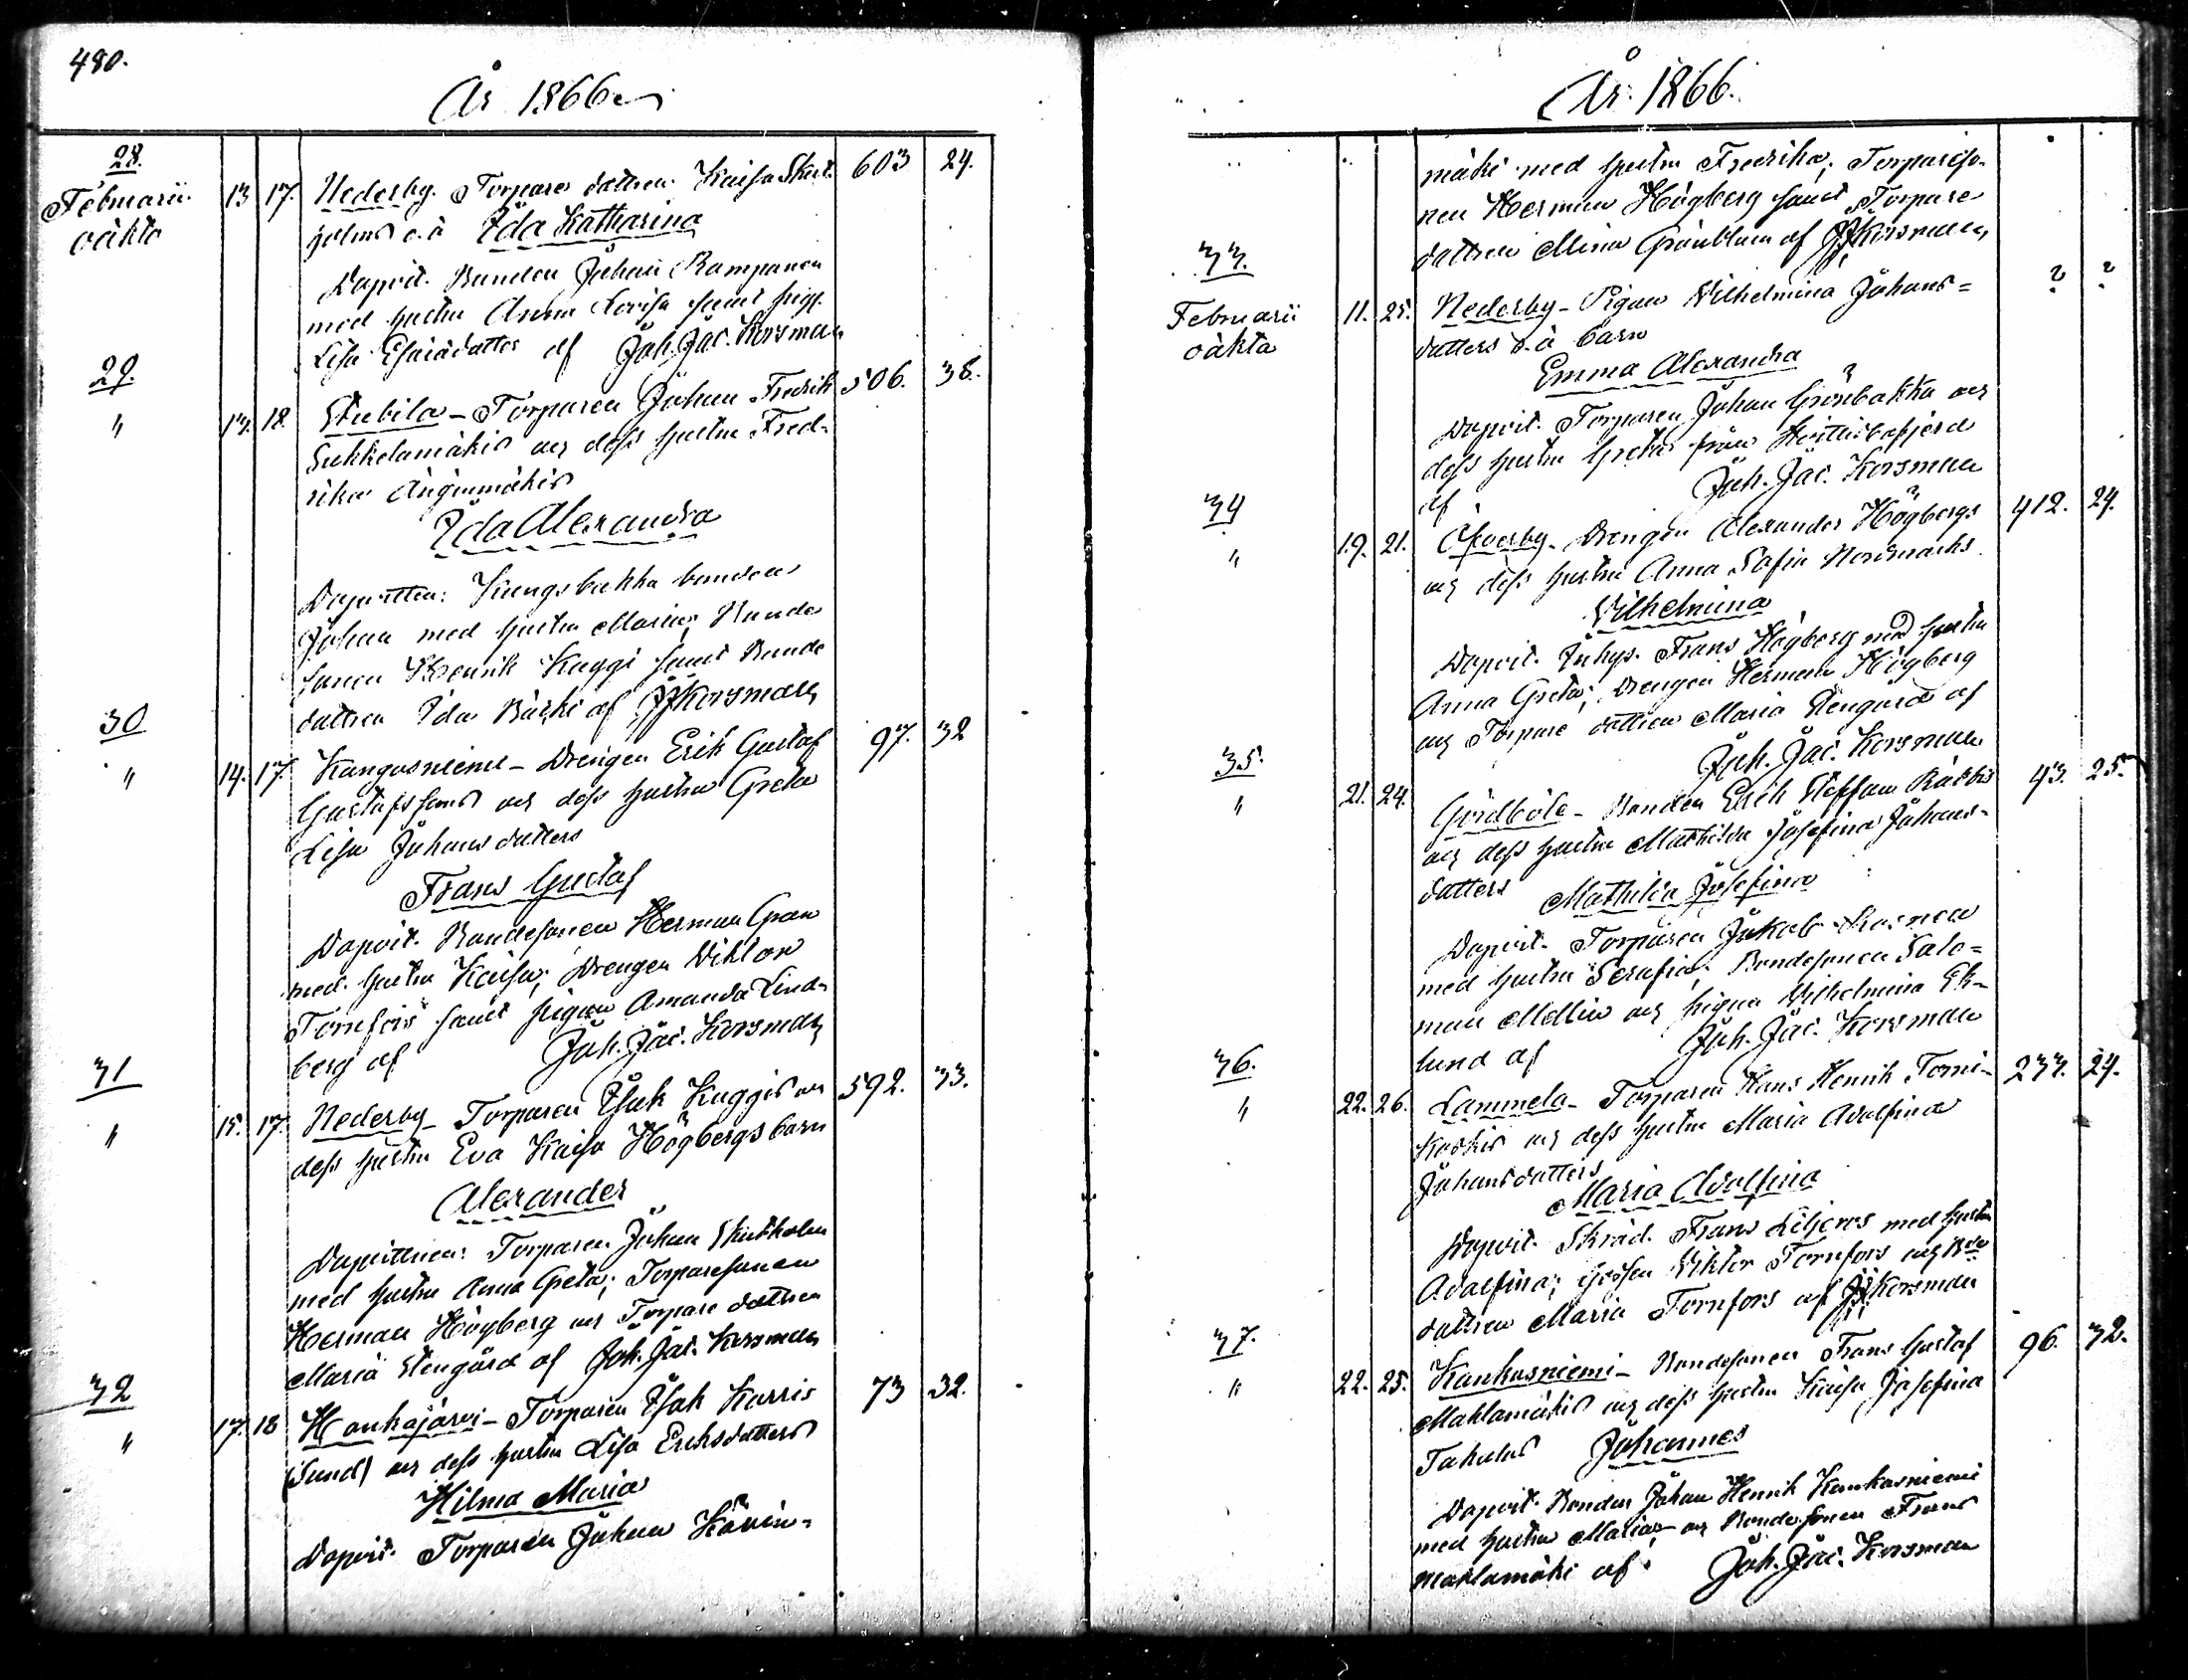 480.
År 1866
28.
Februarii 13 17. Nederby. Torpare dattren Kaisa Skut- 603 24.
oäkta holms o.ä Ida Katharina
Dopvit. Bonden Johan Rampanen
med hustru Anna Lovisa samt pig.
Lisa Esaiædatter af Joh. Jac. Korsman
29.
" 13. 18. Stubila - Torparen Johan Fredrik 506. 38.
Sukkelamäkis och dess hustru Fred-
rika Änginmäkis
Ida Alexandra
Dopvittnen: Kungsbakka bonden
Johan med hustru Maria; Bonde
sonen Henrik Kuggi samt Bonde
dattren Ida Bäcki af JJKorsman
30
" 14. 17. Kangosnieme - Drengen Erik Gustaf 97. 32
Gustafssons och dess hustru Greta
Lisa Johansdatters
Frans Gustaf
Dopvit. Bondesonen Herman Gran
med hustru Kaisa; Drengen Viktor
Tornfors samt pigan Amanda Lind-
berg af Joh. Jac. Korsman
31
" 15. 17. Nederby - Torparen Isak Kuggis och 592. 33.
dess hustru Eva Kaisa Högbergs barn
Alexander
Dopvittnen: Torparen Johan Skutholm
med hustru Anna Greta; Torparesonen
Herman Högberg och Torpare dattren
Maria Stengård af Joh. Jac. Korsman
32
" 17. 18 Hankajärvi - Torparen Isak Karris 73 32.
(Sund) och dess hustru Lisa Eriksdatters
Hilma Maria
Dopvit. Torparen Johan Kävin-
År 1866.
mäki med hustru Fredrika; Torpareso-
nen Herman Högberg samt Torpare
dattren Mina Granblum af JJKorsman
33.
Februarii 11. 25. Nederby - Pigan Vilhelmina Johans= ? ?
oäkta datters o.ä barn
Emma Alexandra
Dopvit. Torparen Johan Grönbakka och
dess hustru Greta från
af Joh. Jac. Korsman
34
" 19. 21. Öfverby - Drengen Alexander Högbergs 412. 24.
och dess hustru Anna Sofia Nordmarks
Vilhelmina
Dopvit. Inhys. Frans Högberg med hustru
Anna Greta; Drengen Herman Högberg
och Torpare dattren Maria Stengård af
Joh. Jac. Korsman
35.
" 21. 24. Gördböle - Bonden Erik Steffan Räckis 43. 25.
och dess hustru Mathilda Josefina Johans-
datters Mathilda Josefina
Dopvit. Torparen Jakob
med hustru Serafia; Bondesonen Salo=
mon Mellin och pigan Vilhelmina Ek-
lund af Joh. Jac. Korsman
36.
" 22. 26. Lammela - Torparen Hans Henrik Torni- 233. 24.
koskis och dess hustru Maria Adolfina
Johansdatters
Maria Adolfina
Dopvit. Skräd. Frans Liljeros med hustru
Adolfina; Gossen Viktor Tornfors och Bde
dattren Maria Tornfors af JJKorsman
37.
" 22. 25. Kankasniemi - Bondesonen Frans Gustaf 96. 32.
Maklamäkis och dess hustru Kaisa Josefina
Takalas Johannes
Dopvit. Bonden Johan Henrik Kankasniemi
med hustru Maria och Bondesonen Frans
Maklamäki af Joh. Jac. Korsman